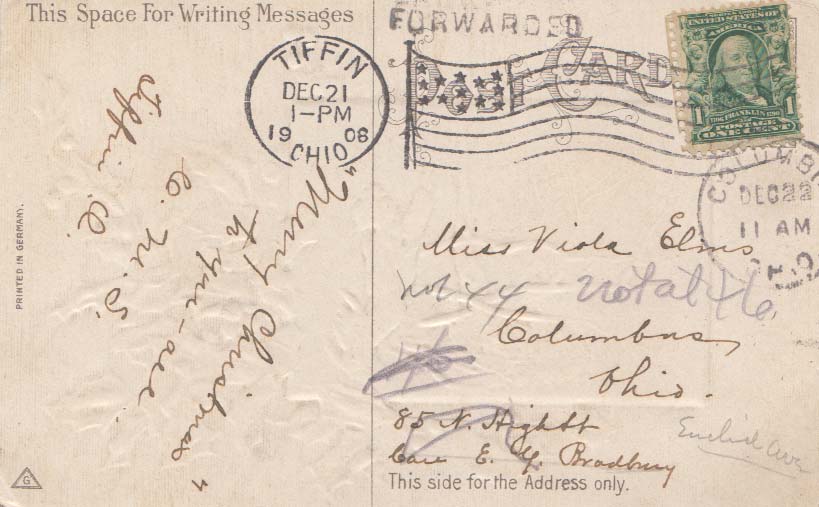 This Space For Writing Messages
FORWARDED
POST CARD
TIFFIN
DEC 21
1-PM
1908
OHIO
UNITED STATES OF
AMERICA
1 1
1706 FRANKLIN 1790
POSTAGE
ONE CENT
COLUMB
DEC 22
11 AM
"Merry Christmas"
to you - all
C. M. S.
Tiffin O.
PRINTED IN GERMANY.
G
Miss Viola Elms
not 44 not at 46
Columbus,
Ohio.
46
85 N. High St
Care E. Y. Bradbury
Euclid Ave
This side for the Address only.